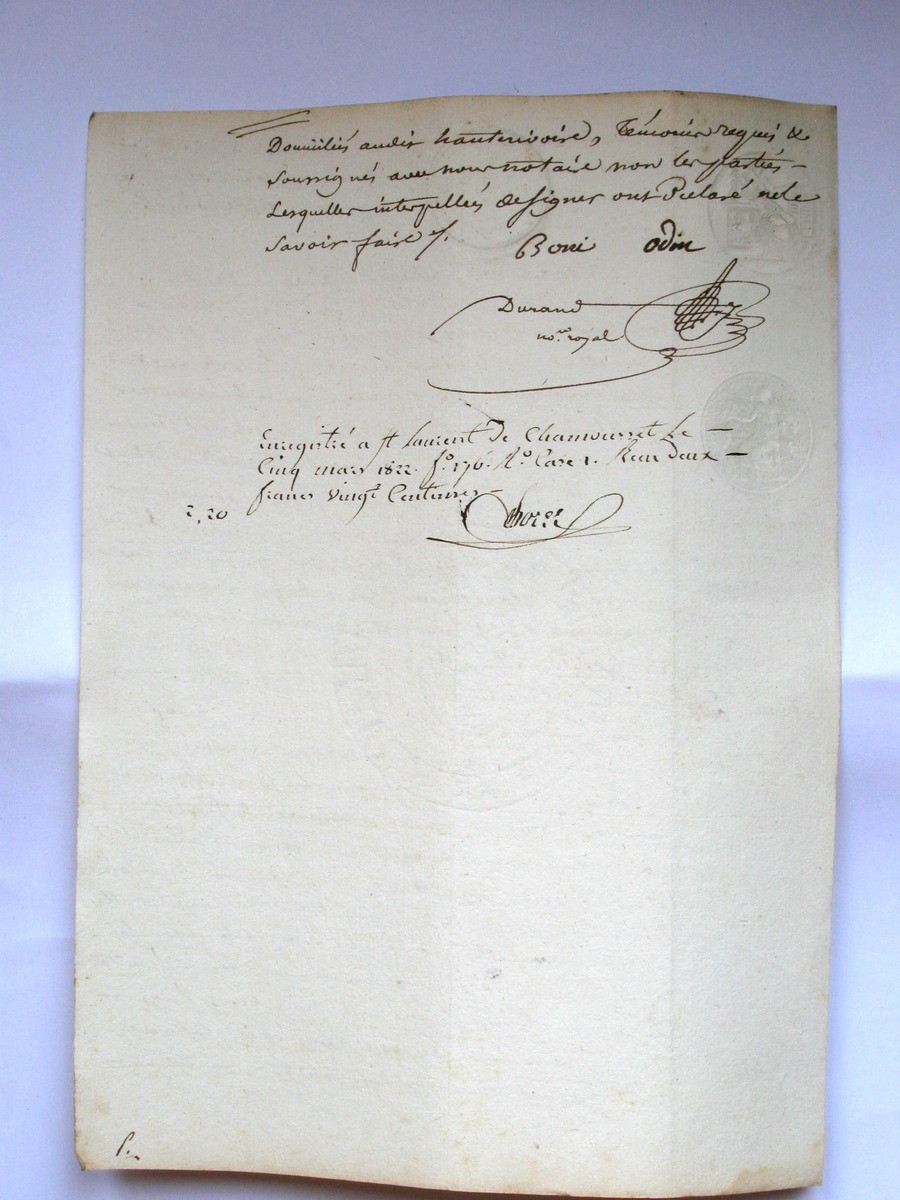 Domiciliés audit hauterivoire, Témoins requis &
soussignés avec nous notaire non les parties
Lesquelles interpellées de signer ont Déclaré ne le
savoir faire /.
Boni odin
Durand
no.re royal
Enregistré a st Laurent de Chamousset Le
Cinq mars 1822. fo. 176. Ro. Case 1. Reçu deux
francs vingt Centimes
2,20